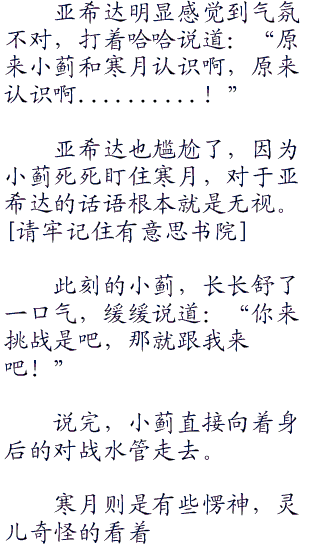 亚希达明显感觉到气氛
不对，打着哈哈说道：“原
来小蓟和寒月认识啊，原来
认识啊..........！”
亚希达也尴尬了，因为
小蓟死死盯住寒月，对于亚
希达的话语根本就是无视。
[请牢记住有意思书院]
此刻的小蓟，长长舒了
一口气，缓缓说道：“你来
挑战是吧，那就跟我来
吧！”
说完，小蓟直接向着身
后的对战水管走去。
寒月则是有些愣神，灵
儿奇怪的看着